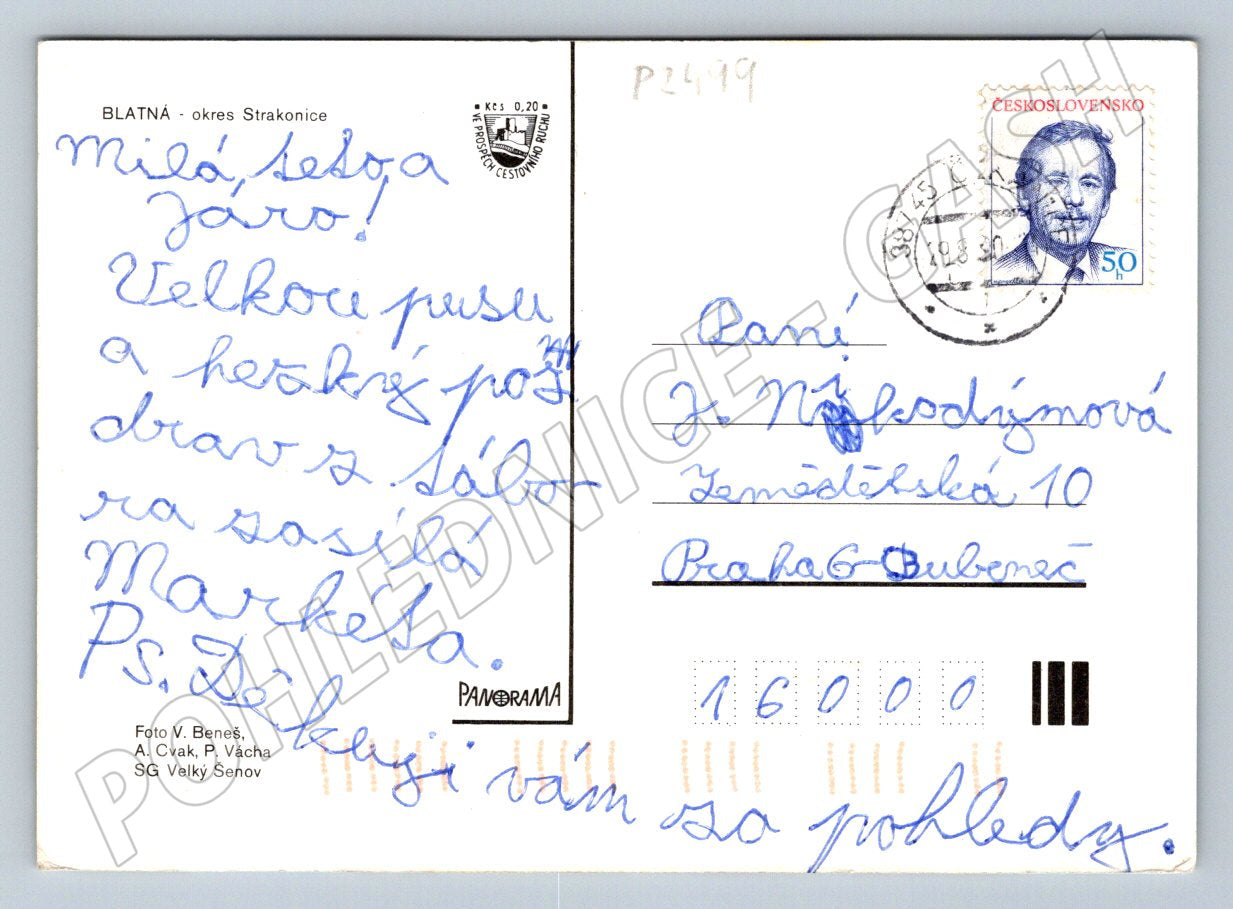 P2499
BLATNÁ - okres Strakonice
Kčs 0,20
VE PROSPĚCH CESTOVNÍHO RUCHU
ČESKOSLOVENSKO
50
h
387 45
Milá, teto, a
Járo!
Velkou pusu
a hezký poz
drav z tábo
ra zasílá
Markéta.
Ps. Děkuji vám za pohledy.
PANORAMA
Foto V. Beneš,
A. Cvak, P. Vácha
SG Velký Šenov
Paní
J. Nikodýmová
Zemědělská 10
Praha 6 - Bubeneč
16000
POHLEDNICE - GASH